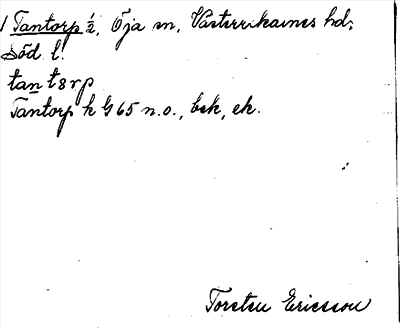 1 Tantorp 1/2, Öja sn, Västerrikarnes hd,
Söd l.
tan tsrp
Tantorp h G65 n.o., bsk, ek.
Torsten Ericsson